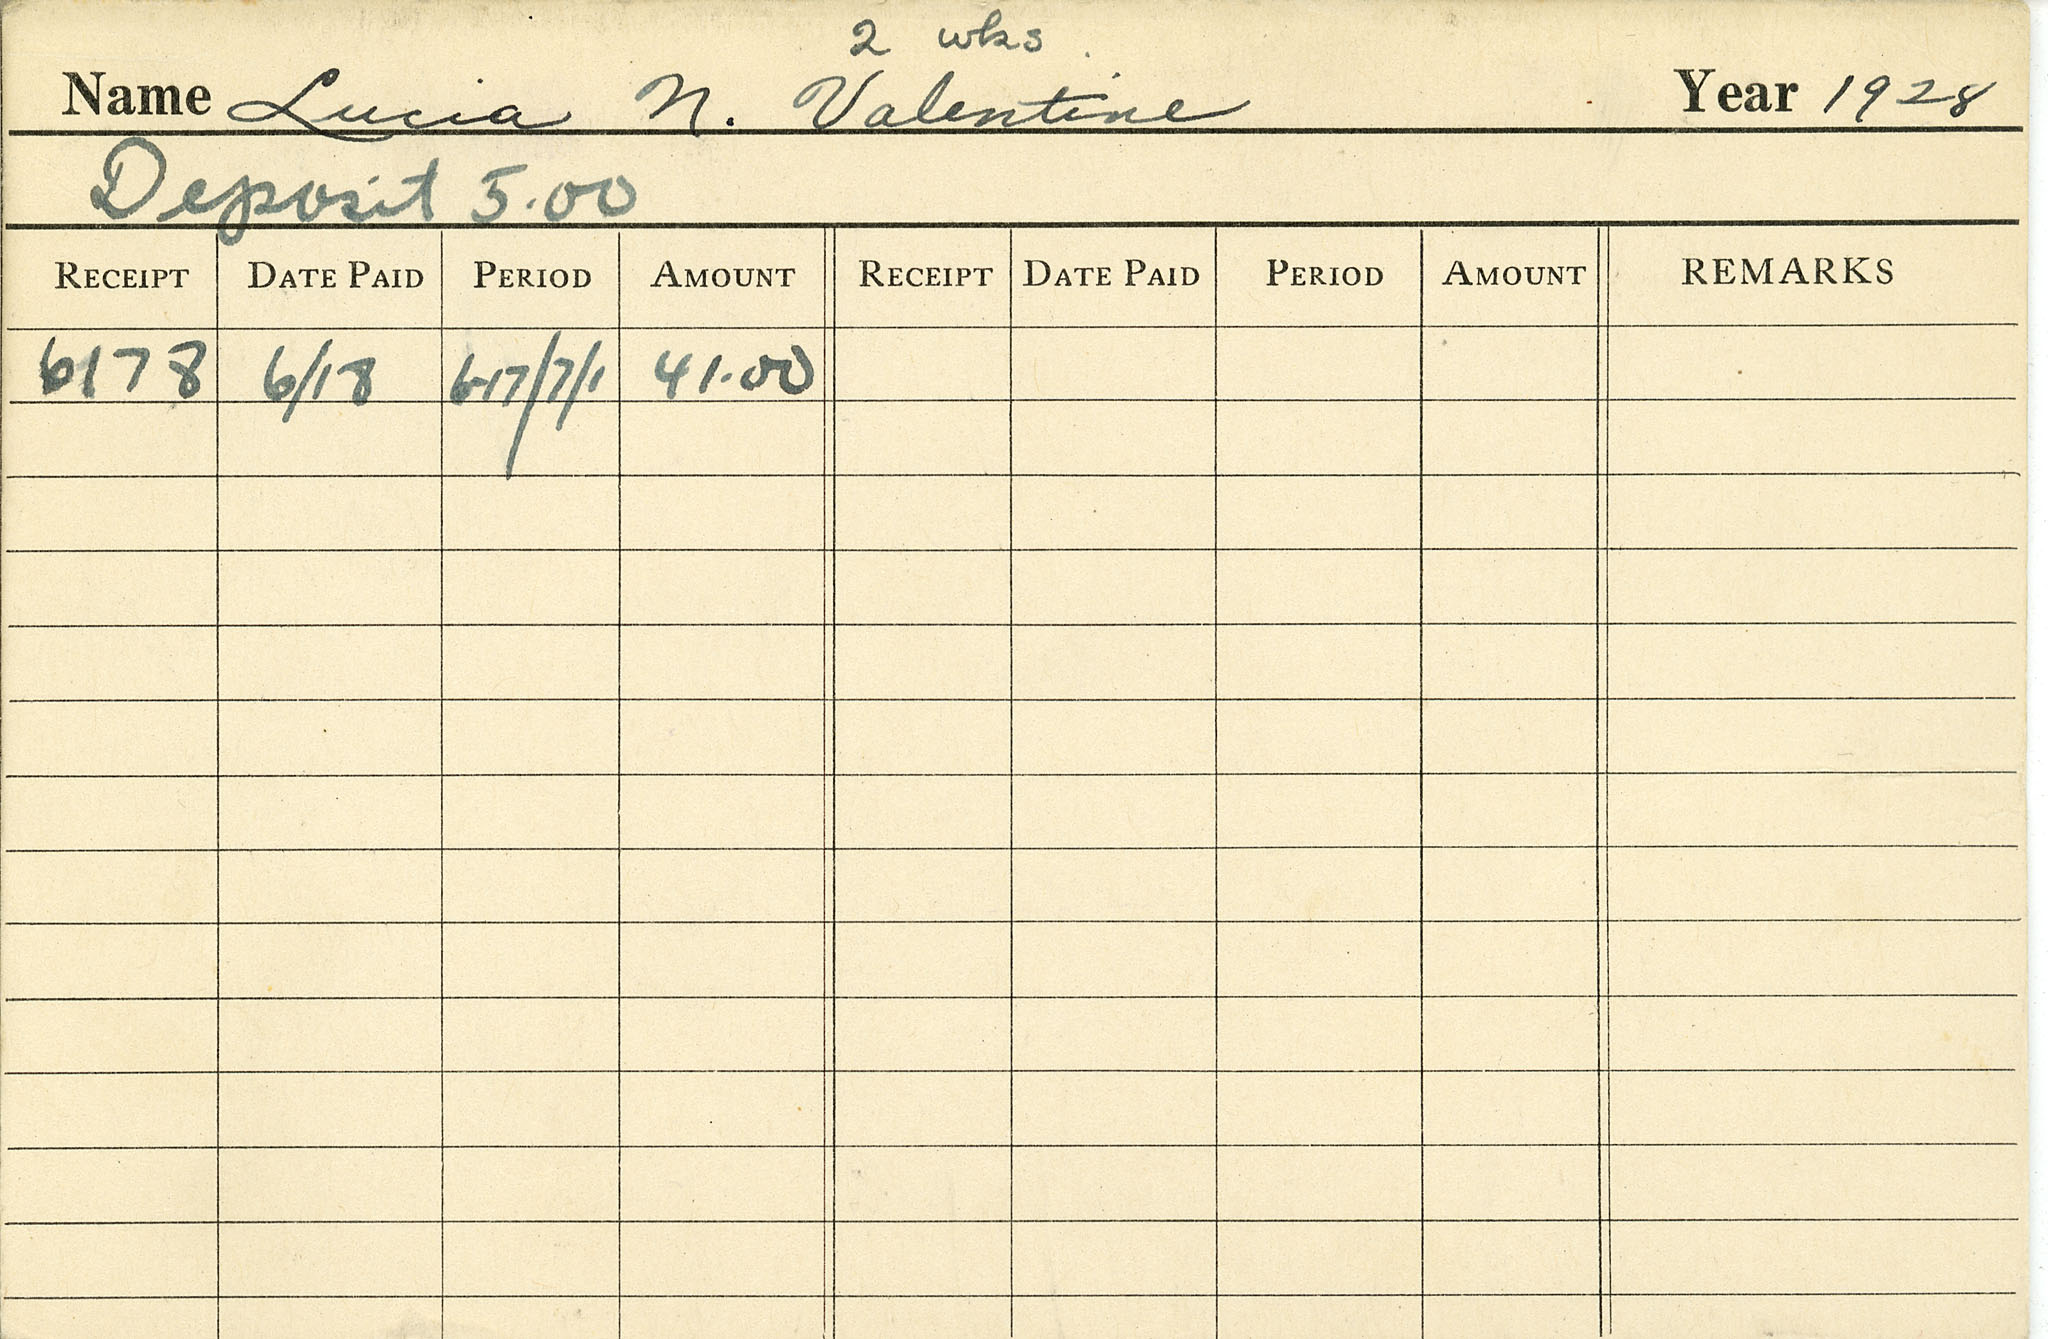 2 wks
Name Lucia N. Valentine Year 1928
Deposit 5.00
RECEIPT DATE PAID PERIOD AMOUNT RECEIPT DATE PAID PERIOD AMOUNT REMARKS
6178 6/18 6-17/7/1 41.00